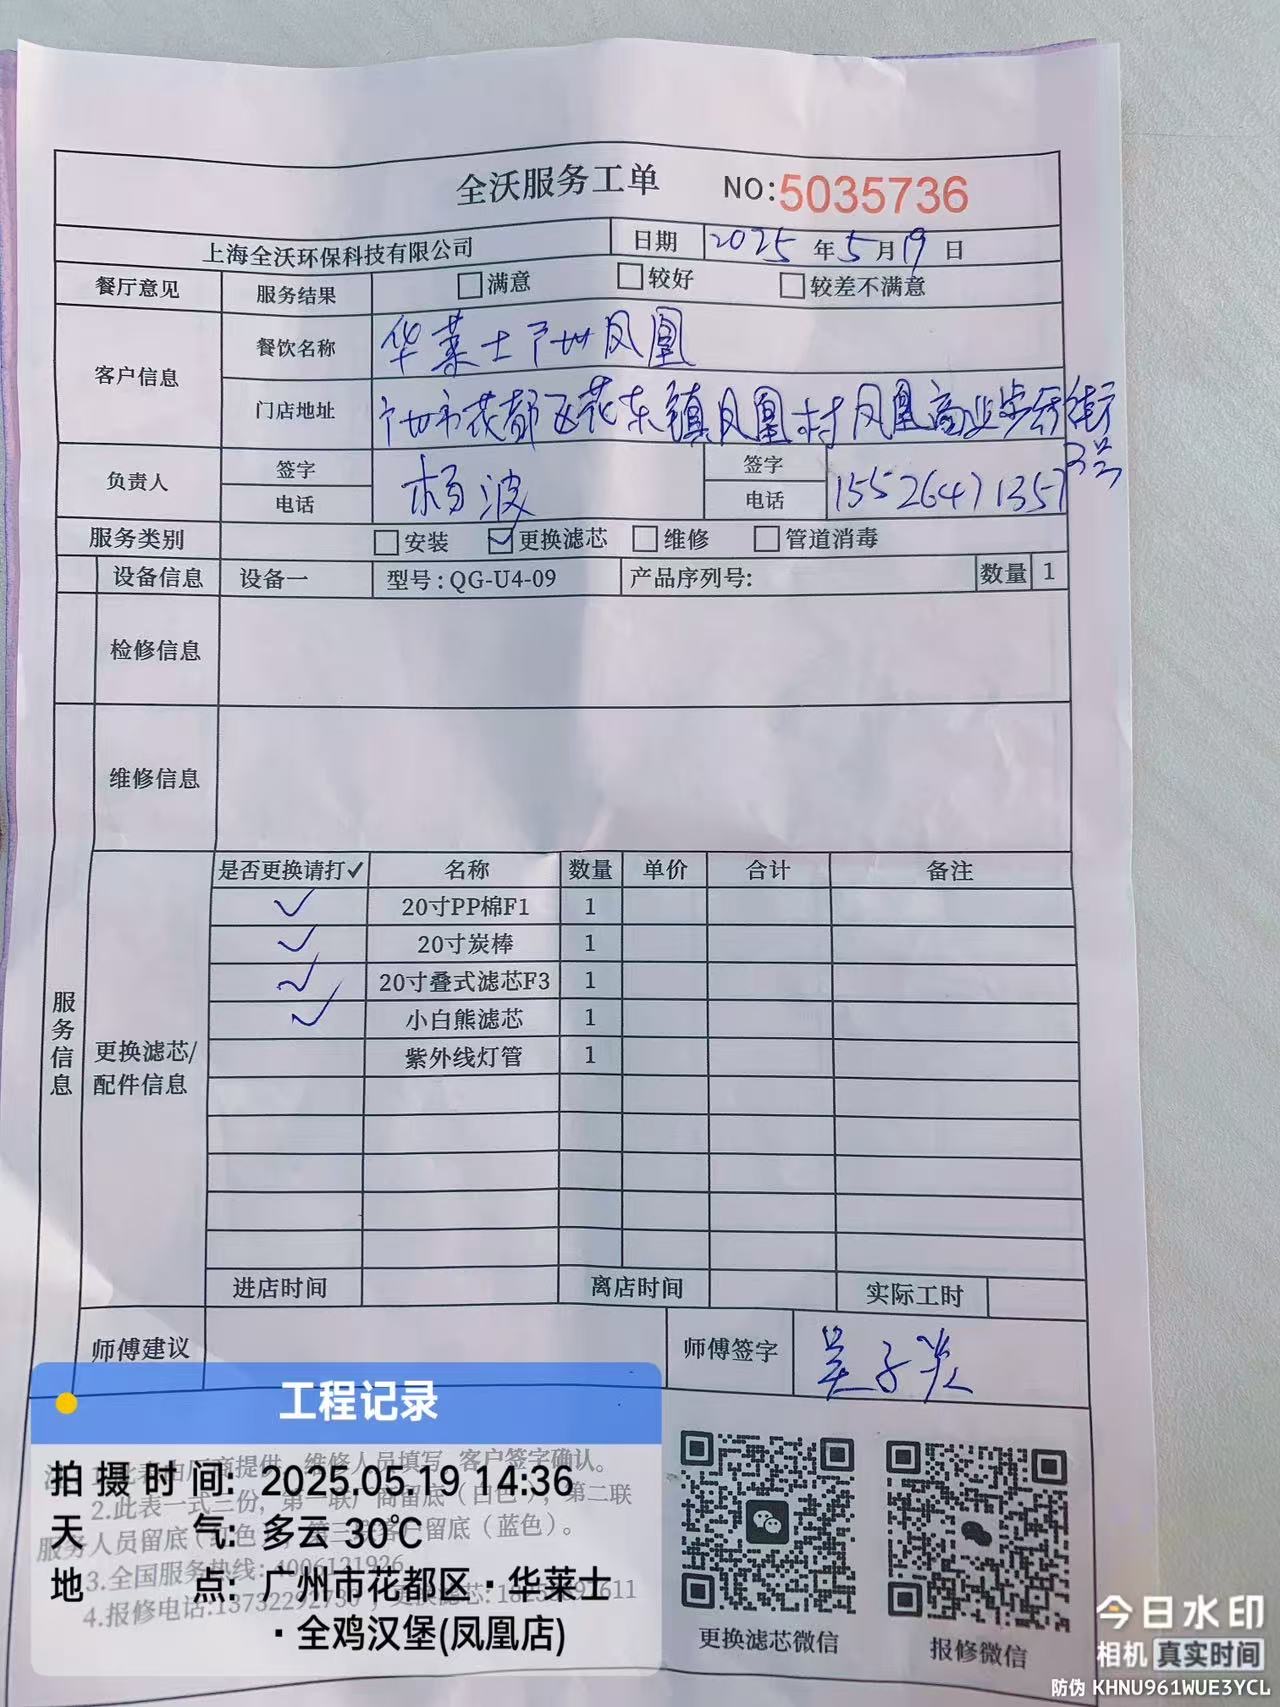 全沃服务工单 NO:5035736
上海全沃环保科技有限公司 日期 2025 年 5 月 19 日
餐厅意见 服务结果 满意 较好 较差不满意
客户信息
餐饮名称 华莱士广州凤凰
门店地址 广州市花都区花东镇凤凰村凤凰商业步行街
2号
负责人 签字 杨波 签字
电话 电话 15526471357
服务类别 安装 更换滤芯 维修 管道消毒
设备信息 设备一 型号:QG-U4-09 产品序列号: 数量 1
检修信息
维修信息
服务信息
更换滤芯/
配件信息
是否更换请打✓ 名称 数量 单价 合计 备注
✓ 20寸PP棉F1 1
✓ 20寸炭棒 1
✓ 20寸叠式滤芯F3 1
✓ 小白熊滤芯 1
紫外线灯管 1
进店时间 离店时间 实际工时
师傅建议 师傅签字 吴子
维修人员填写,客户签字确认。
2.此表一式三份,第一联厂商留底(白色),第二联
服务人员留底(红色),第三联客户留底(蓝色)。
3.全国服务热线:4006121926
4.报修电话:13732292730 更换滤芯:
更换滤芯微信 报修微信
工程记录
拍摄时间: 2025.05.19 14:36
天气: 多云 30℃
地点: 广州市花都区·华莱士
·全鸡汉堡(凤凰店)
今日水印
相机 真实时间
防伪 KHNU961WUE3YCL